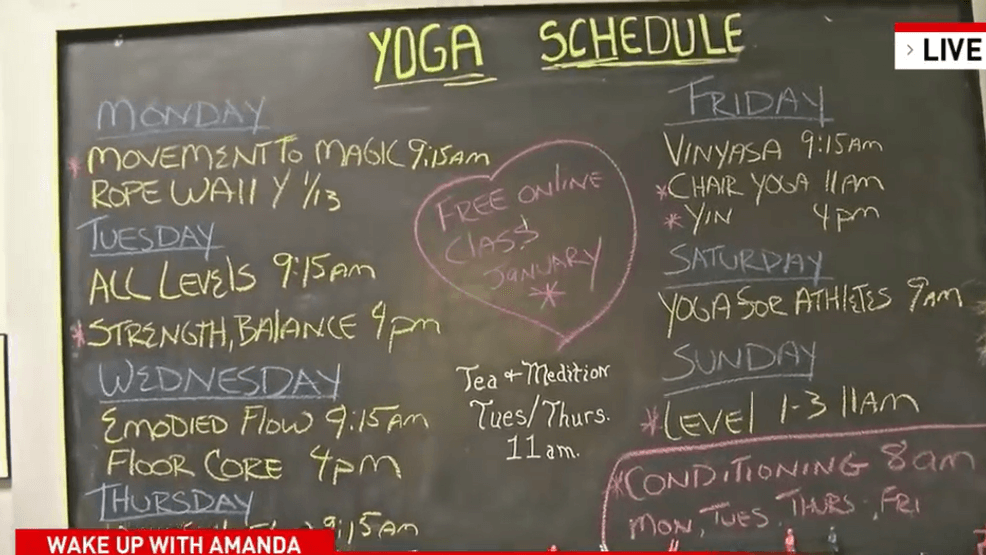 YOGA SCHEDULE
> LIVE
MONDAY
* MOVEMENT TO MAGIC 9:15AM
ROPE WAll Y 1/13
TUESDAY
ALL LEVELS 9:15AM
* STRENGTH, BALANCE 4pm
WEDNESDAY
EMODIED FLOW 9:15AM
FLOOR CORE 4pm
THURSDAY
9:15AM
FREE ONLINE
CLASS
JANUARY
*
Tea + Medition
Tues/Thurs.
11 am.
FRIDAY
VINYASA 9:15AM
* CHAIR YOGA 11AM
* YIN 4pm
SATURDAY
YOGA FOR ATHLETES 9AM
SUNDAY
* LEVEL 1-3 11AM
* CONDITIONING 8am
MON, TUES, THURS, FRI
WAKE UP WITH AMANDA